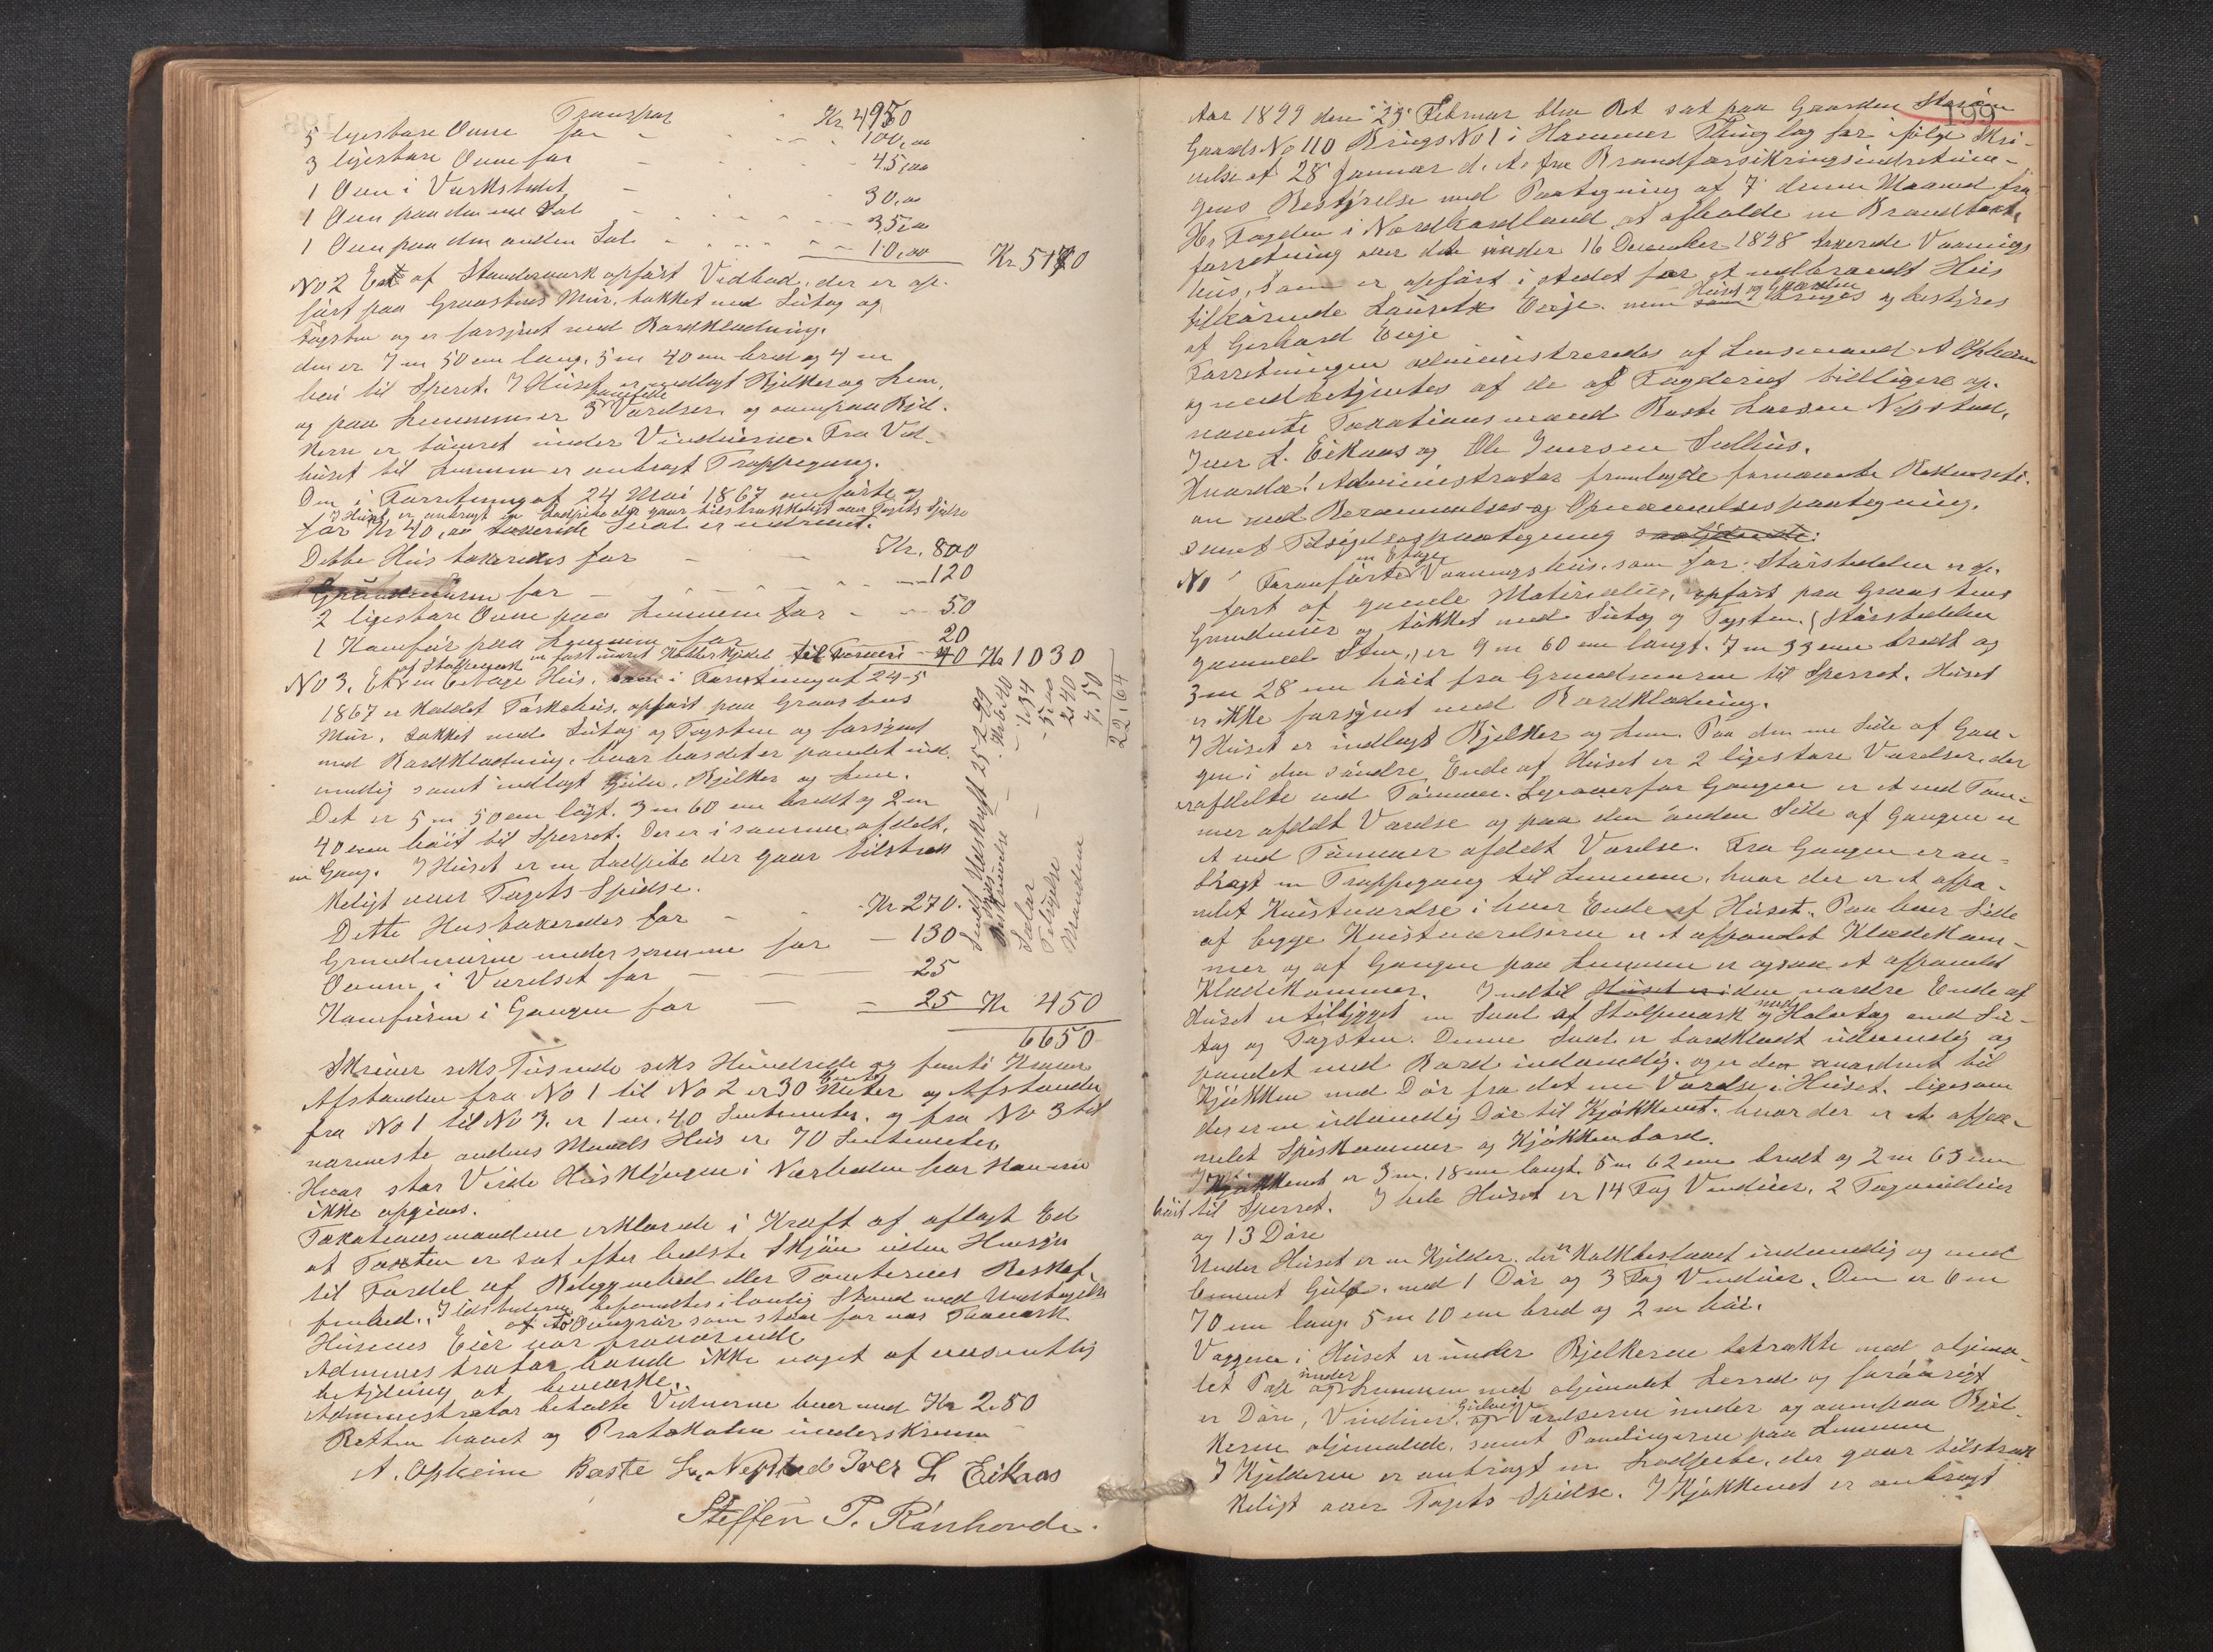 Transport Kr 4950
5 ligestore Ovne for 100,00
3 ligestore Ovne for 45,00
1 Ovn i Værkstedet 30,00
1 Ovn paa den ene Sal 35,00
1 Ovn paa den anden Sal 10,00 Kr 5170
No 2 Et af Standerværk opført Vedbod, der er op-
ført paa Graastens Mur, takket med Sutag og
Tagsten og er forsynet med Bordklædning.
den er 7 m 50 cm lang, 5 m 40 cm bred og 4 m
høi til Sperret. I Huset er indlagt Bjelker og Lem,
og paa Lemmen er 3 panelede Værelser og ovenpaa Bjel-
kerne er tømret under Vinduerne. Fra Ved-
huset til Lemmen er anbragt Trappegang.
Den i Forretning af 24 Mai 1867 anførte og
I Huset er anbragt en Lodpibe der gaar tilstrækkeligt over Tagets Spidse
for Kr 40,00 takserede Sval er nedrevet.
Dette Hus takseredes for Kr. 800
Grundmuren for 120
2 ligestore Ovne paa Lemmen for 50
1 Komfur paa Lemmen for 20
en fastmuret Kobberkjedel til 40 Kr 1030
No 3. Et af Stolpeværk en Etages Hus, som i Forretning af 24-5
1867 er kaldet Tørkehus, opført paa Graastens
Mur, takket med Sutag og Tagsten og forsynet
med Bordklædning, hvor hosdet er panelet ind-
vendig samt indlagt Gulv, Bjelker og Lem.
Det er 5 m 50 cm langt, 3 m 60 cm bredt og 2 m
40 cm høit til Sperret. Der er i samme afdelt
en Gang. I Huset er en Lodpibe der gaar tilstræk
keligt over Tagets Spidse.
Dette Hus takseredes for Kr 270.
Grundmuren under samme for 130
Ovnen i Værelset for 25
Komfuren i Gangen for 25 Kr 450
6650
Sendt Udskrift 25-2-99
Beskrivelse Kr 6.40
1.34
Salær 5.00
Tilsigelse 2.40
Mændene 7.50
22.64
Skriver seks Tusende seks Hundrede og femti Kroner
Afstanden fra No 1 til No 2 er 30 Centimeter og Afstanden
fra No 1 til No 3, er 1 m. 40 Centimeter, og fra No 3 til
nærmeste andens Mands Hus er 70 Centimeter,
Hvor stor Værdi Husklyngen i Nærheden har kan nu
ikke opgives.
Taxationsmændene erklærede i Kraft af aflagt Ed
at Taxten er sat efter bedste Skjøn uden Hensyn
til Fordel af Beliggenhed eller Tomternes Beskaf-
fenhed. Ildstederne befandtes i lovlig Stand med Undtagelse
af to Ovnsrør som staar for nær Træværk
Husenes Eier var fraværende
Administrator havde ikke noget af væsentlig
betydning at bemærke.
Administrator betalte Vidnerne hver med Kr 2.50
Retten hævet og Protokollen underskreven
A. Opheim Baste L. Nepstad Iver L Eikaas
Steffen P. Rønhovde.
199
Aar 1899 den 25 Februar blev Ret sat paa Gaarden
Gaards No 110 Brugs No 1 i Hammer Thinglag for ifølge Skri-
velse af 28 Januar d. A. fra Brandforsikringsindretnin-
gens Bestyrelse med Paategning af 7 denne Maaned fra
Hr. Fogden i Nordhordland at afholde en Brandtaxt-
forretning over det under 16 December 1898 takserede Vaanings
hus, som er opført i stedet for et nedbrændt Hus
tilhørende Lauritz Evije men Huset og Gaarden bruges og bestyres
af Gerhard Evije
Forretningen administreredes af Lensmand A Opheim
og medbetjentes af de af Fogderiet tidligere op-
nævnte Taxationsmænd Baste Larsen Nepstad,
Iver L. Eikaas og Ole Iversen Sælhus.
Hvorda: Administrator fremlagde fornævnte Rekvisiti-
on med Berammelses- og Opnævnelsespaategning,
samt Tilsigelsespaategning saalydende:
No 1 Foranførte en Etages Vaaningshus, som for Størstedelen er op-
ført af gamle Materialier, opført paa Graastens
Grundmur og takket med Sutag og Tagsten. (Størstedelen
gammel Sten,) er 9 m 60 cm langt, 7 m 33 cm bredt og
3 m 28 cm høit fra Grundmuren til Sperret. Huset
er ikke forsynet med Bordklædning.
I Huset er indlagt Bjelker og Lem. Paa den ene Side af Gan-
gen i den søndre Ende af Huset er 2 ligestore Værelser, der
er afdelte med Tømmer. Ligeoverfor Gangen er et med Tøm-
mer afdelt Værelse og paa den anden Side af Gangen er
et med Tømmer afdelt Værelse. Fra Gangen er an-
bragt en Trappegang til Lemmen, hvor der er et afpa-
nelet Kvistværelse i hver Ende af Huset. Paa hver Side
af begge Kvistværelserne er et afpanelet Klædekam-
mer og af Gangen paa Lemmen er ogsaa et afpanelet
Klædekammer. Indtil Huset er i den nordre Ende af
Huset er tilbygget en Sval af Stolpeværk og med Halvtag med Su-
tag og Tagsten. Denne Sval er bordklædt udvendig og
panelet med Bord indvendig, og er den anordnet til
Kjøkken med Dør fra det ene Værelse i Huset, ligesom
der er en udvendig Dør til Kjøkkenet, hvor der er et afpa-
nelet Spiskammer og Kjøkkenbord.
Kjøkkenet er 3 m. 18 cm langt, 5 m 62 cm bredt og 2 m 63 cm
høit til Sperret. I hele Huset er 14 Fag Vinduer, 2 Tagvinduer
og 13 Døre
Under Huset er en Kjelder, der er Kalkbeslaaet indvendig og med
Cement Gulv, med 1 Dør og 3 Fag Vinduer. Den er 6 m
70 cm lang 5 m 10 cm bred og 2 m høi.
Væggene i Huset er under Bjelkerne betrækte med oljema-
let Pap og under Lemmen med oljemalet Lerred og forøvrigt
er Døre, Vinduer, Gulvene og Værelserne under og ovenpaa Bjel-
kerne oljemalede, samt Panelingerne paa Lemmen
I Kjelderen er anbragt en Lodpibe, der gaar tilstræk
keligt over Tagets Spidse. I Kjøkkenet er anbragt